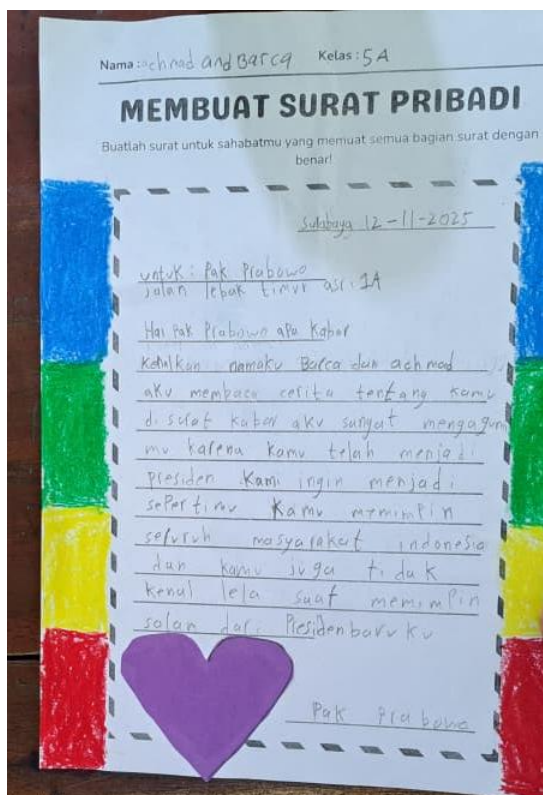 Nama : achmad and Barca Kelas : 5A
MEMBUAT SURAT PRIBADI
Buatlah surat untuk sahabatmu yang memuat semua bagian surat dengan
benar!
Surabaya 12-11-2025
untuk : Pak Prabowo
jalan lebak timur asri 1A
Hai Pak Prabowo apa Kabar
Kenalkan namaku Barca dan achmad
aku membaca cerita tentang kamu
di surat kabar aku sangat mengagumi
mu karena kamu telah menjadi
presiden Kami ingin menjadi
sepertimu Kamu memimpin
seluruh masyarakat indonesia
dan kamu juga tidak
kenal lela saat memimpin
salan dari Presiden baru ku
Pak Prabowo